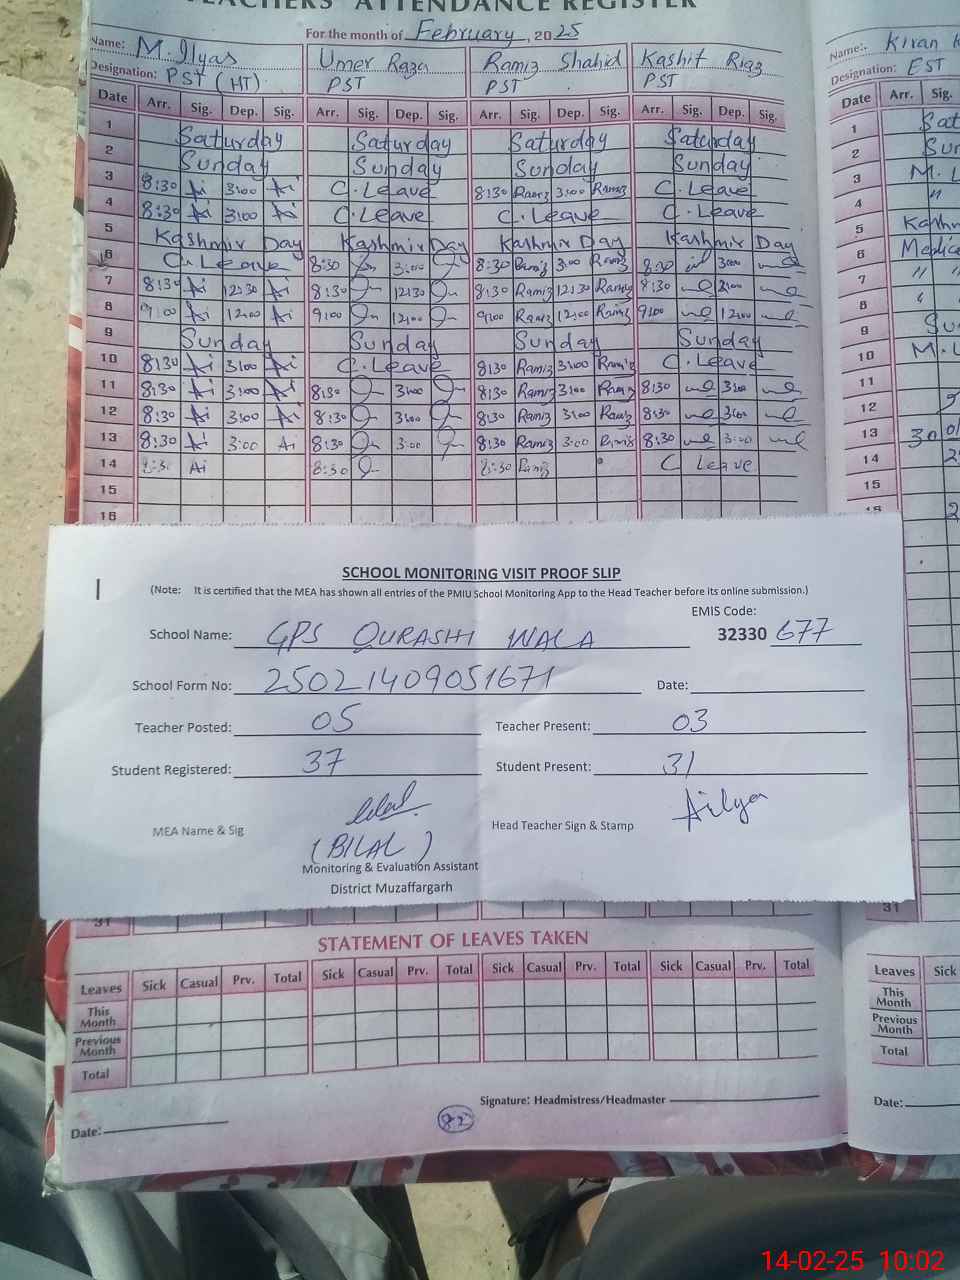 TEACHERS' ATTENDANCE REGISTER
For the month of February, 2025
Name: M. Ilyas Umer Raza Ramiz Shahid Kashif Riaz Name:- Kiran
Designation: PST (HT) PST PST PST Designation: EST
Date Arr. Sig. Dep. Sig. Arr. Sig. Dep. Sig. Arr. Sig. Dep. Sig. Arr. Sig. Dep. Sig. Date Arr. Sig.
1 Saturday Saturday Saturday Saturday 1 Sat
2 Sunday Sunday Sunday Sunday 2 Sun
3 8:30 Ai 3:00 Ai C. Leave 8:30 Ramiz 3:00 Ramiz C. Leave 3 M. L
4 8:30 Ai 3:00 Ai C. Leave C. Leave C. Leave 4 "
5 Kashmir Day Kashmir Day Kashmir Day Kashmir Day 5 Kashm
6 C. Leave 8:30 3:00 8:30 Ramiz 3:00 Ramiz 8:30 3:00 6 Medica
7 8:30 Ai 12:30 Ai 8:30 12:30 8:30 Ramiz 12:30 Ramiz 8:30 7 " "
8 9:00 Ai 12:00 Ai 9:00 12:00 9:00 Ramiz 12:00 Ramiz 9:00 12:00 8 "
9 Sunday Sunday Sunday Sunday 9 Su
10 8:30 Ai 3:00 Ai C. Leave 8:30 Ramiz 3:00 Ramiz C. Leave 10 M. L
11 8:30 Ai 3:00 Ai 8:30 3:00 8:30 Ramiz 3:00 Ramiz 8:30 3:00 11
12 8:30 Ai 3:00 Ai 8:30 3:00 8:30 Ramiz 3:00 Ramiz 8:30 3:00 12
13 8:30 Ai 3:00 Ai 8:30 3:00 8:30 Ramiz 3:00 Ramiz 8:30 3:00 13 30
14 8:30 Ai 8:30 8:30 Ramiz C Leave 14
15 15
16
SCHOOL MONITORING VISIT PROOF SLIP
(Note: It is certified that the MEA has shown all entries of the PMIU School Monitoring App to the Head Teacher before its online submission.)
EMIS Code:
School Name: GPS QURASHI WALA 32330 677
School Form No: 25021409051671 Date:
Teacher Posted: 05 Teacher Present: 03
Student Registered: 37 Student Present: 31
MEA Name & Sig Bilal Head Teacher Sign & Stamp Ailyas
(BILAL)
Monitoring & Evaluation Assistant
District Muzaffargarh
31 31
STATEMENT OF LEAVES TAKEN
Leaves Sick Casual Prv. Total Sick Casual Prv. Total Sick Casual Prv. Total Sick Casual Prv. Total Leaves Sick
This Month This Month
Previous Month Previous Month
Total Total
Signature: Headmistress/Headmaster
Date: 82 Date:
14-02-25 10:02